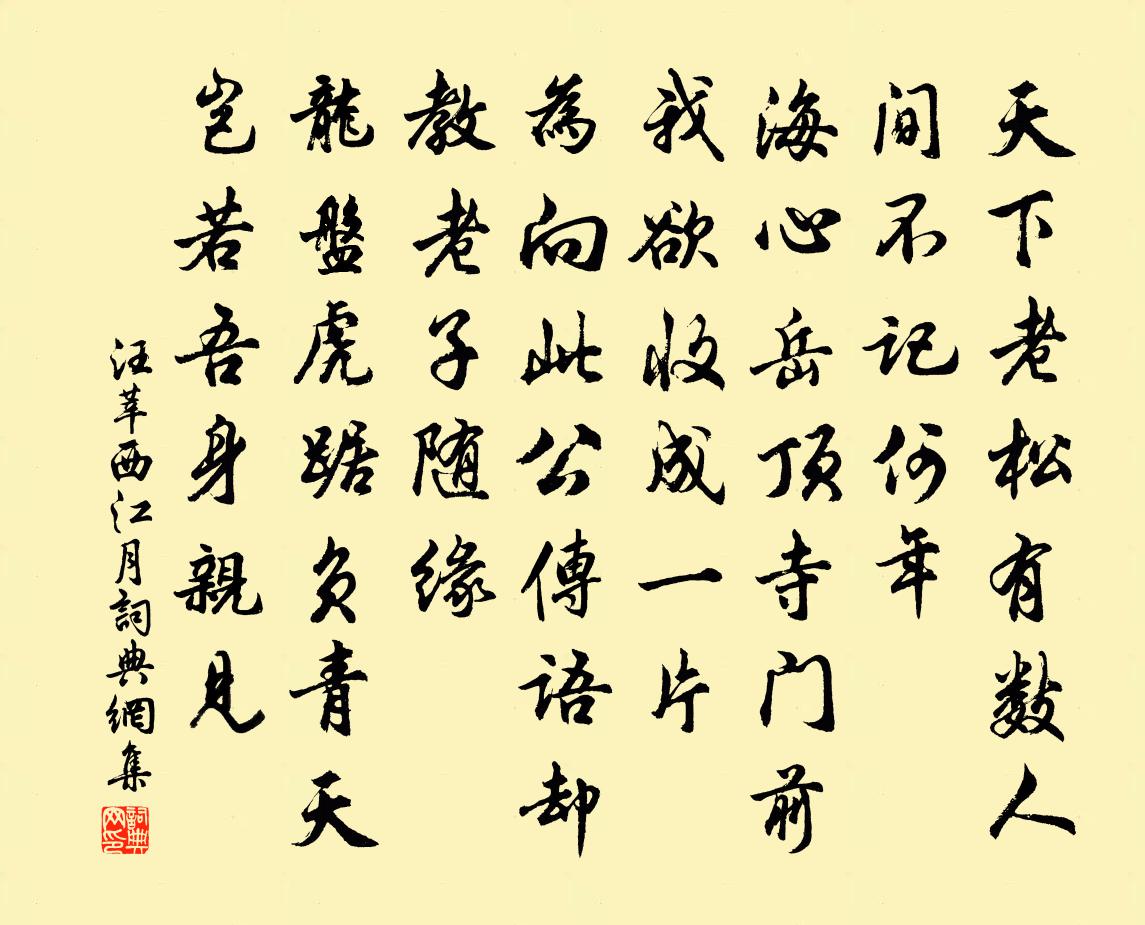 天下老松有数人
间不记何年
海心岳顶寺门前
我欲收成一片
為向此公傳语却
教老子随缘
龍盤虎踞负青天
岂若吾身親见
汪莘西江月詞典網集
詞典网印